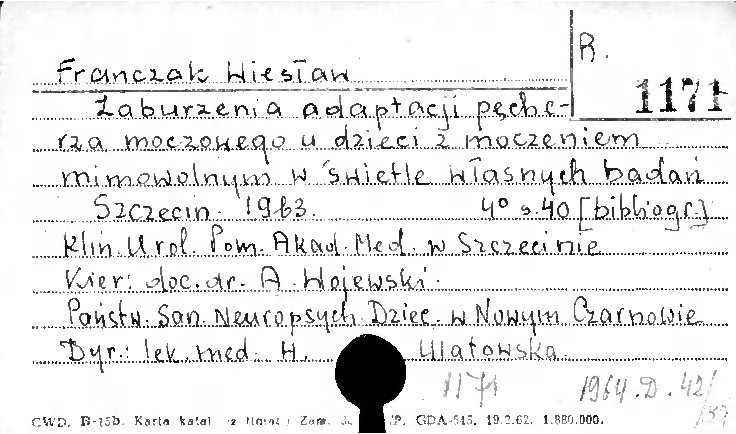 R.
1171
Franczak Wiesław
Zaburzenia adaptacji pęche-
rza moczowego u dzieci z moczeniem
mimowolnym w świetle własnych badań
Szczecin 1963. 4° s. 40 [bibliogr.]
Klin. Urol. Pom. Akad. Med. w Szczecinie
Kier: doc. dr. A. Wojewski.
Państw. San. Neuropsych Dziec. w Nowym Czarnowie
Dyr.: lek. med. H. Ulatowska
1171 1964.D.42/
/39
CWD. B-15b. Karta katal GDA-545. 19.2.62. 1.880.000.